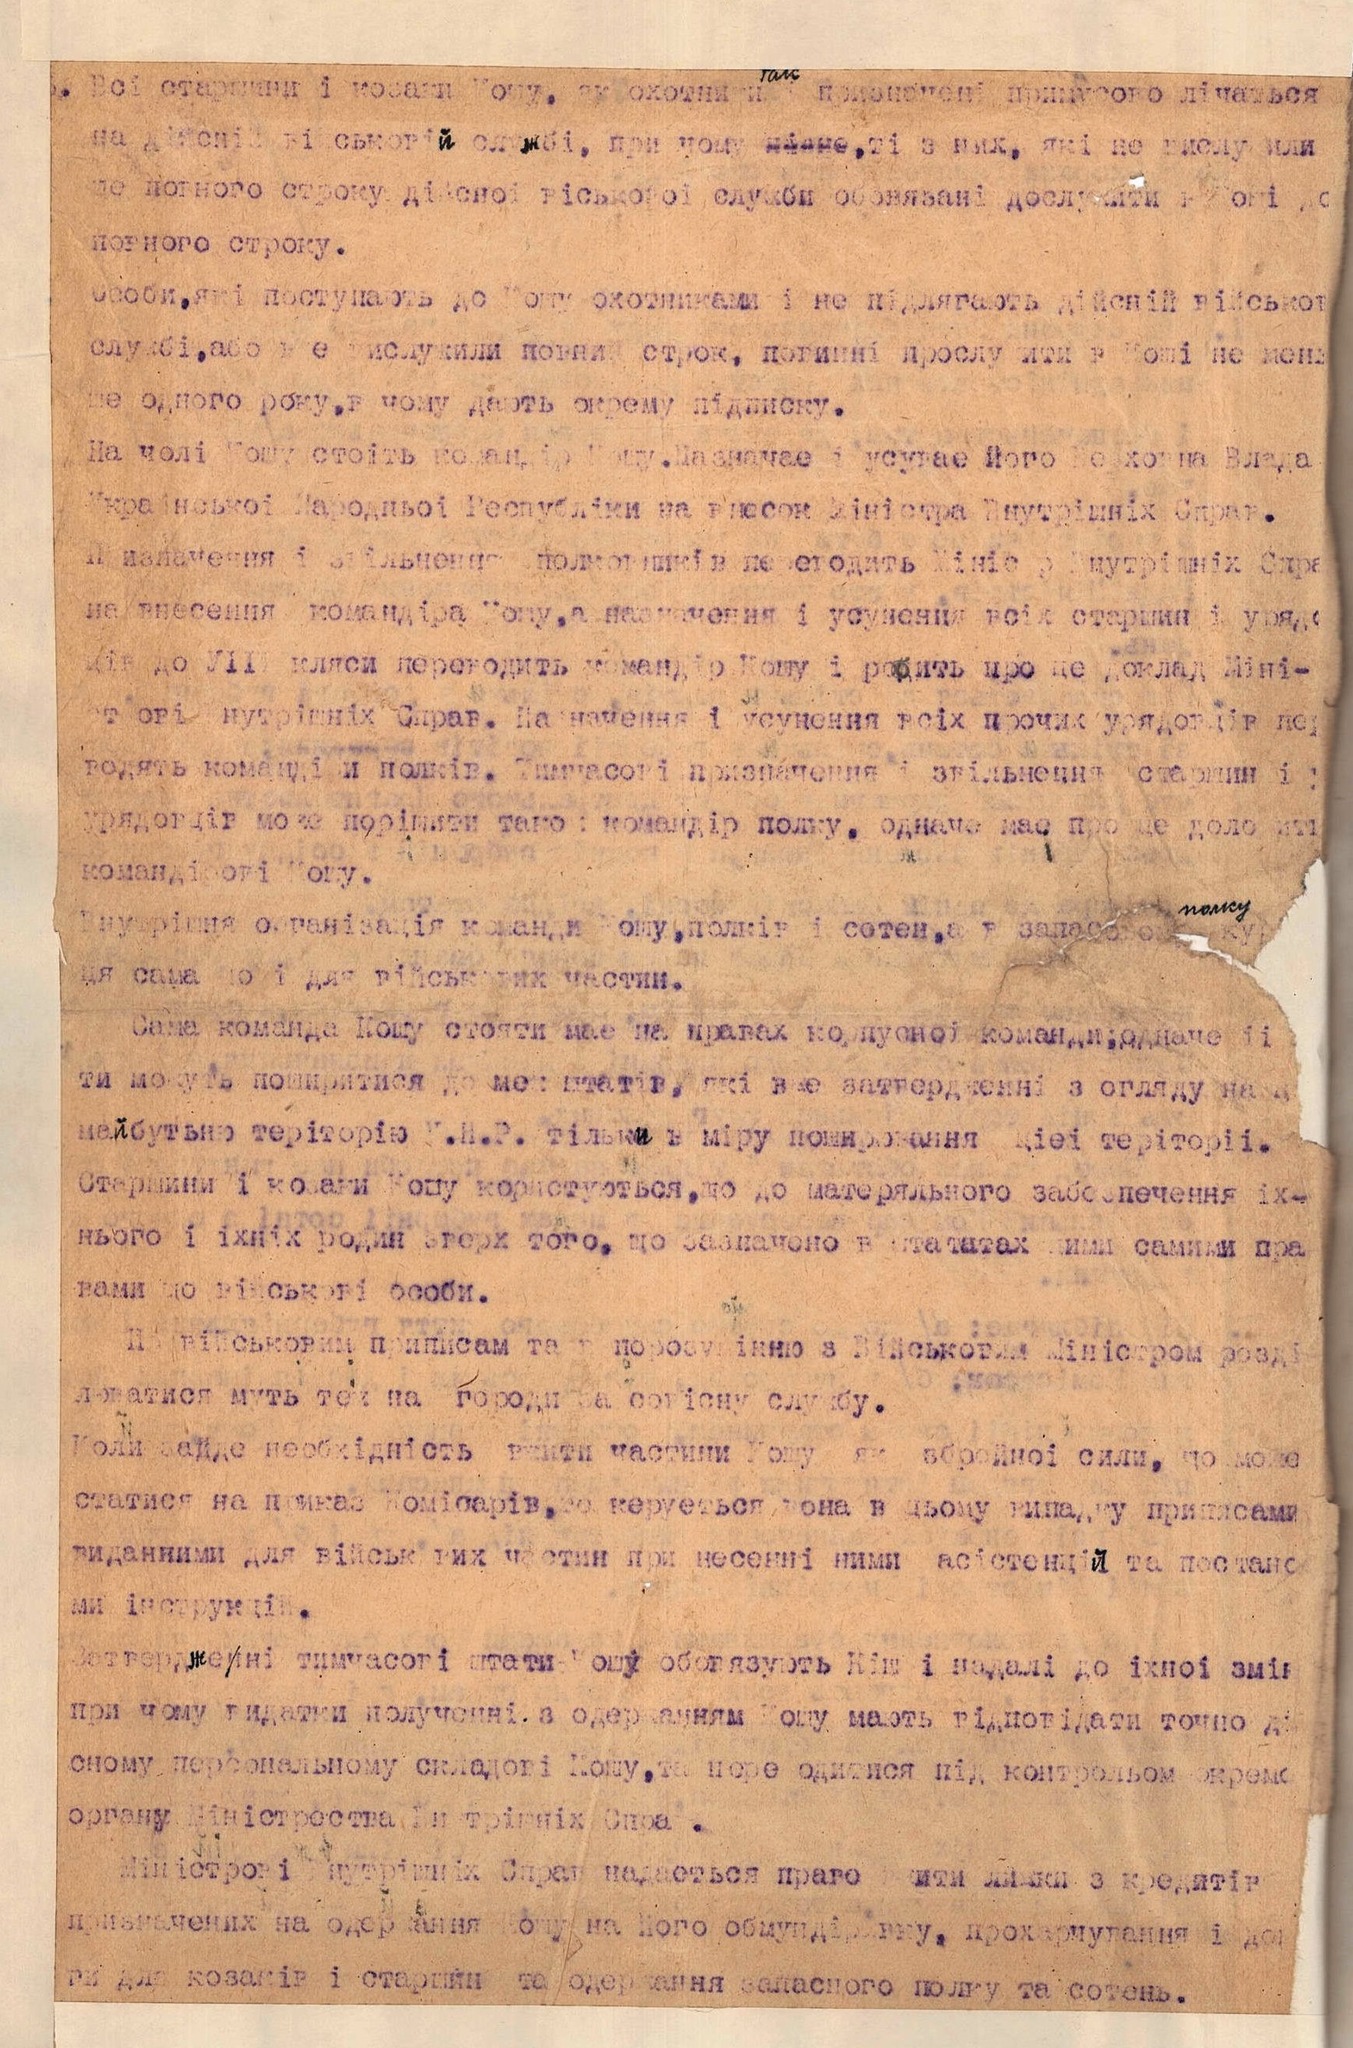 Всі старшини і козаки Кошу, як охотники так і призначені примусово лічаться
на дійсній військовій службі, при чому ті з них, які не вислужили
ще повного строку дійсної віськової служби обовязані дослужити в Коші до
повного строку.
Особи,які поступають до Кошу охотниками і не підлягають дійсній військов
службі,або вже вислужили повний строк, повинні прослужити в Коші не мень
ше одного року,в чому дають окрему підписку.
На чолі Кошу стоіть командір Кошу.Назначає і усуває його Верховна Влада
Української Народньої Республіки на внесок Міністра Внутрішніх Справ.
Призначення і звільнення полковників переводить Міністр Внутрішніх Спра
на внесення командіра Кошу,а назначення і усунення всіх старшин і урядо
вців до УІІІ кляси переводить командір Кошу і робить про це доклад Міні-
строві Внутрішніх Справ. Назначення і усунення всіх прочих урядовців пер
водять командіри полків. Тимчасові призначення і звільнення старшин і
урядовців може порішити також командір полку, одначе має про це доложити
командірові Кошу.
Внутрішня організація команди Кошу,полків і сотен,а в запасового полку
ця сама що і для військових частин.
Сама команда Кошу стояти має на правах корпусної команди;одначе її
ти можуть поширятися до меж штатів, які вже затвердженні з огляду на
майбутьню теріторію У.Н.Р. тільки в міру пошировання цієї теріторії.
Старшини і козаки Кошу користуються,що до матеряльного забезпечення їх-
нього і їхніх родин зверх того, що зазначено в штатах тими самими пра
вами що військові особи.
По військовим приписам та в порозумінню з Військовим Міністром розді
люватися муть теж на городи за совісну службу.
Коли зайде необхідність вжити частини Кошу як збройної сили, що може
статися на приказ Комісарів,то керується вона в цьому випадку приписами
виданними для військових частин при несенні ними асістенцій та постано
ми інструкцій.
Затвердженні тимчасові штати Кошу обовязують Кіш і надалі до їхної змін
при чому видатки полученні з одержанням Кошу мають відповідати точно ді
сному персональному складові Кошу,та переводитися під контрольом окремо
органу Міністерства Внутрішніх Справ.
Міністрові Внутрішніх Справ надається право вжити лишки з кредитів
призначених на одержання Кошу на його обмундіровку, прохарчування і
ги для козаків і старшин та одержання запасного полку та сотень.